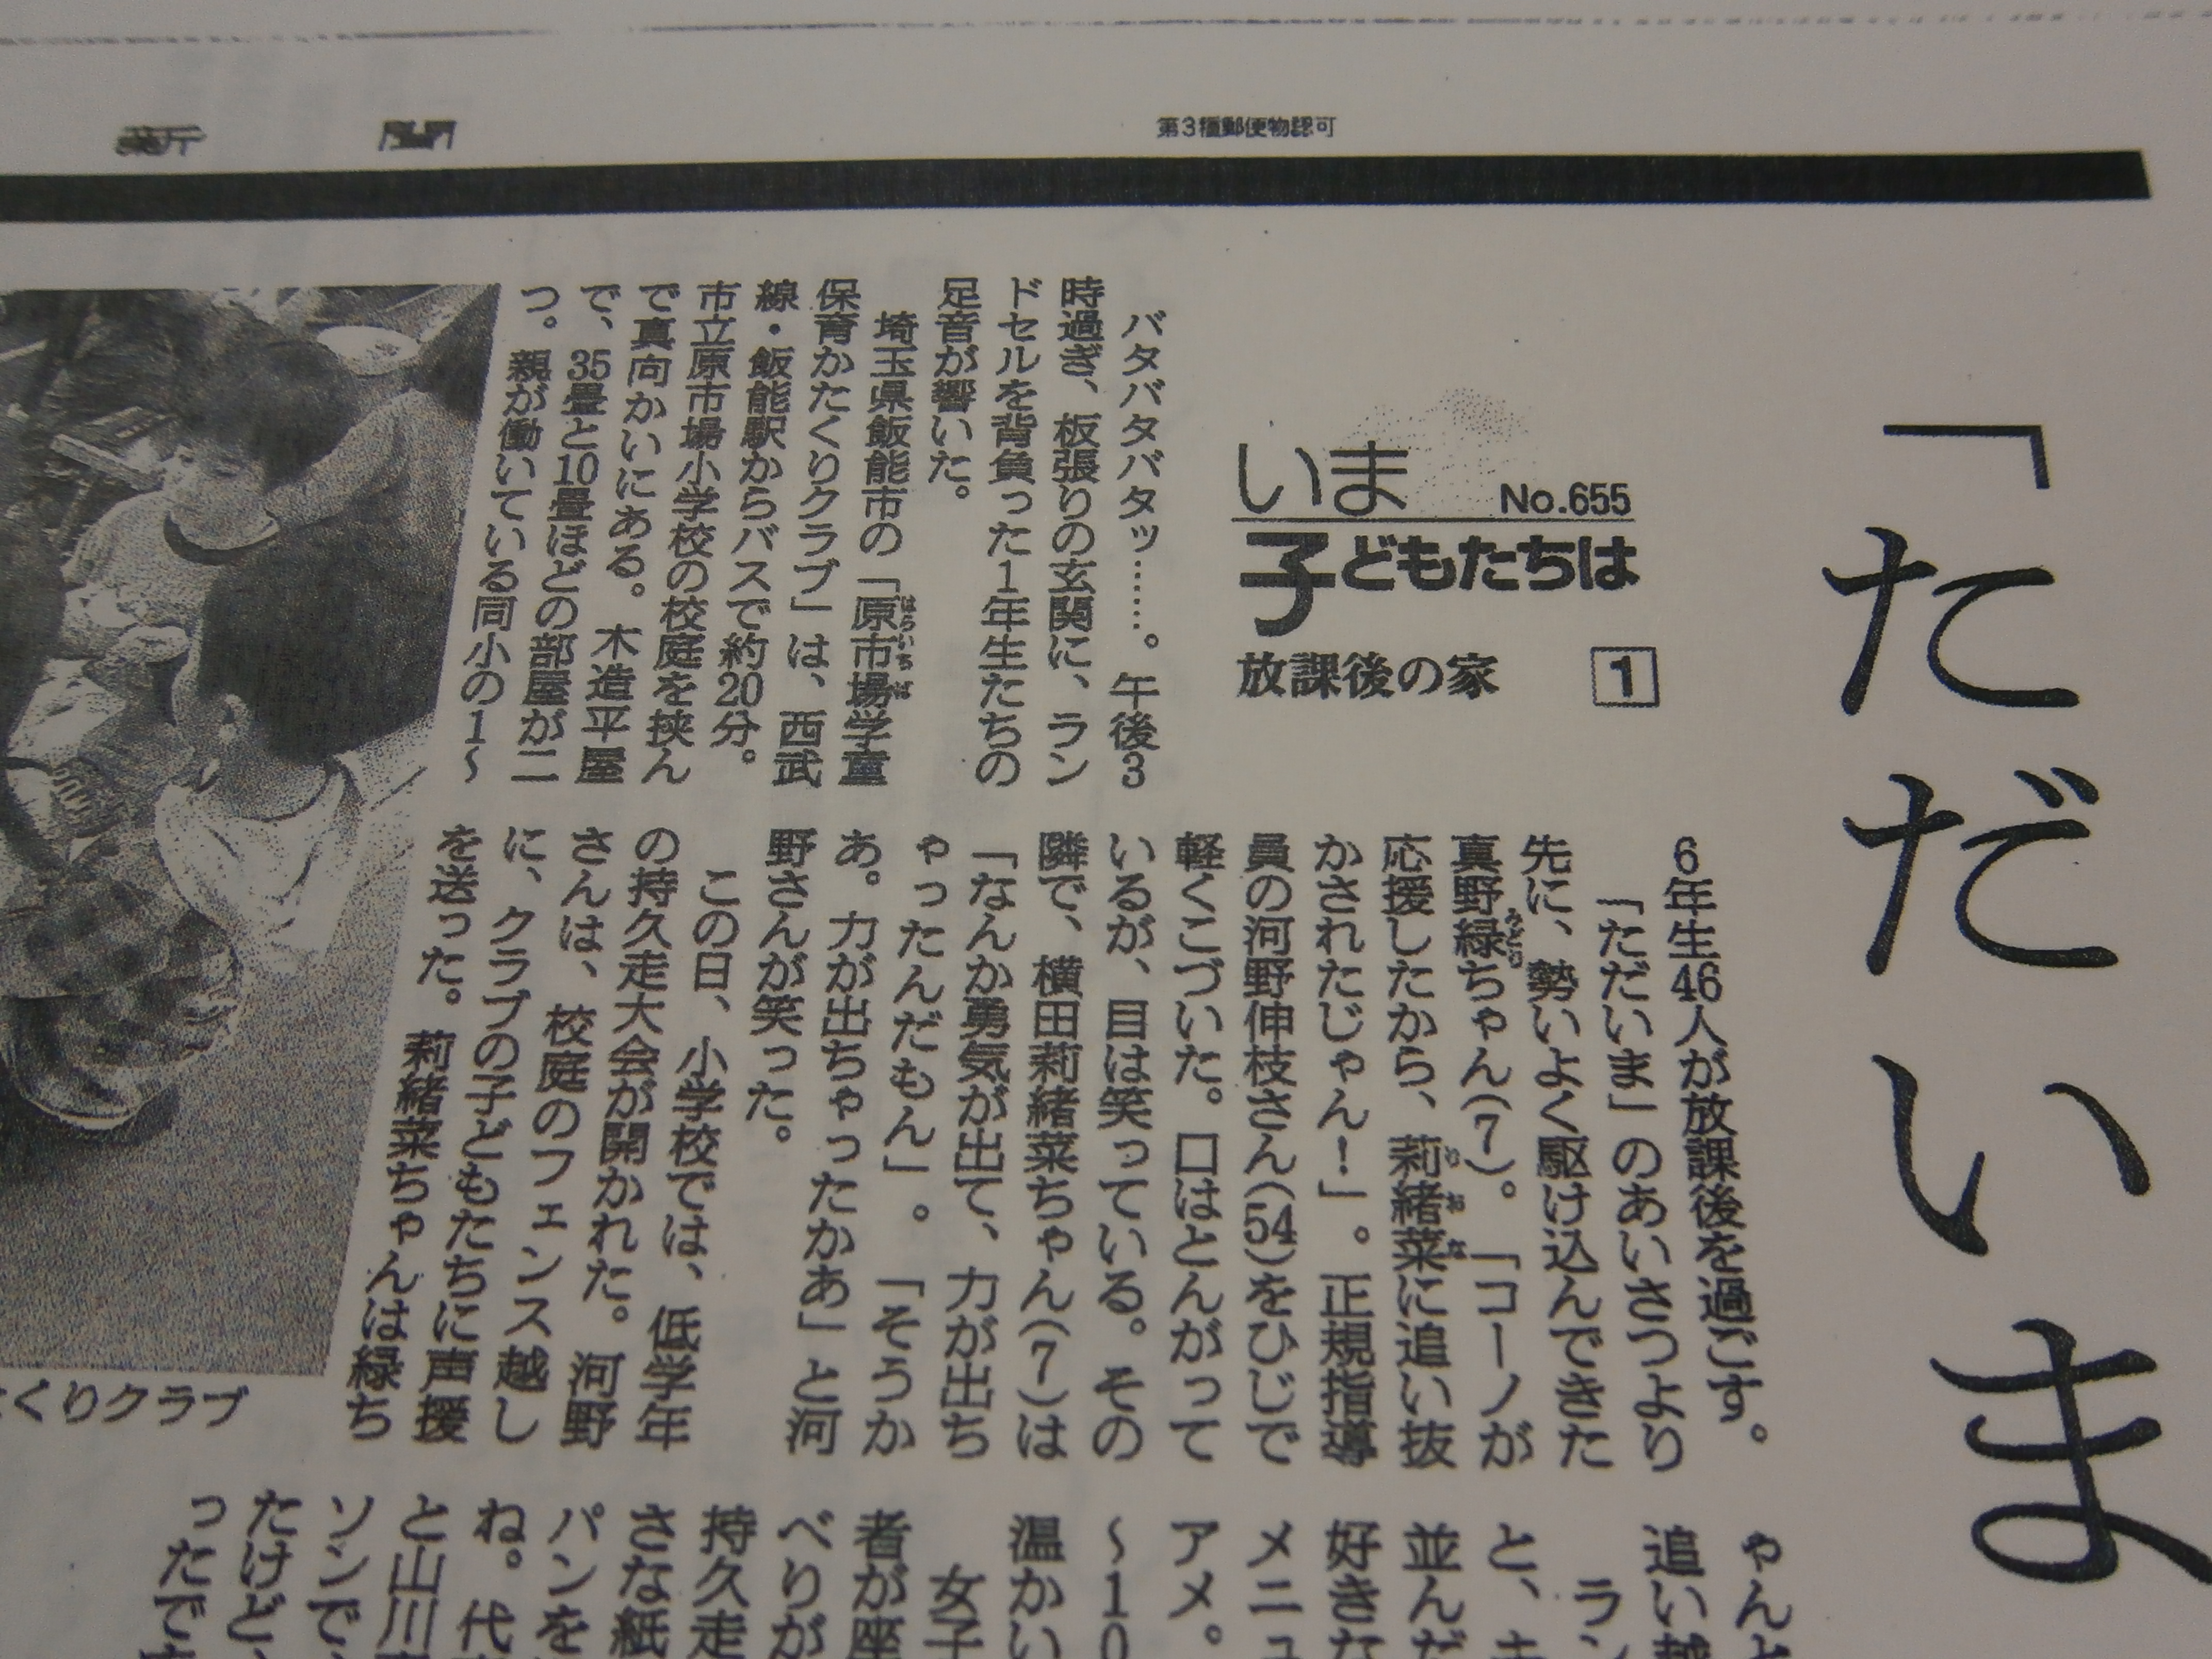 新聞
第3種郵便物認可
「ただいま
いま
No.655
子どもたちは
放課後の家
1
バタバタバタッ……。午後3
時過ぎ、板張りの玄関に、ラン
ドセルを背負った1年生たちの
足音が響いた。
埼玉県飯能市の「原市場学童
はらいちば
保育かたくりクラブ」は、西武
線・飯能駅からバスで約20分。
市立原市場小学校の校庭を挟ん
で真向かいにある。木造平屋
で、35畳と10畳ほどの部屋が二
つ。親が働いている同小の1〜
6年生46人が放課後を過ごす。
「ただいま」のあいさつより
先に、勢いよく駆け込んできた
真野緑ちゃん(7)。「コーノが
みどり
応援したから、莉緒菜に追い抜
りおな
かされたじゃん!」。正規指導
員の河野伸枝さん(54)をひじで
軽くこづいた。口はとんがって
いるが、目は笑っている。その
隣で、横田莉緒菜ちゃん(7)は
「なんか勇気が出て、力が出ち
ゃったんだもん」。「そうか
あ。力が出ちゃったかあ」と河
野さんが笑った。
この日、小学校では、低学年
の持久走大会が開かれた。河野
さんは、校庭のフェンス越し
に、クラブの子どもたちに声援
を送った。莉緒菜ちゃんは緑ち
ゃんと
追い越
ラン
と、キ
並んだ
好きな
メニュ
アメ。
〜10
温かい
女子
者が座
べりが
持久走
さな紙
パンを
ね。代
と山川
ソンで
たけど、
ったです
くりクラブ